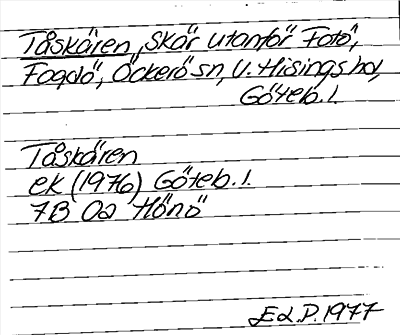 Tåskären, Skär utanför Fotö,
Öckerö sn, V. Hisings hd,
Göteb. l.
Tåskären
ek (1976) Göteb. l.
7B 0a Hönö
E.L.P. 1977